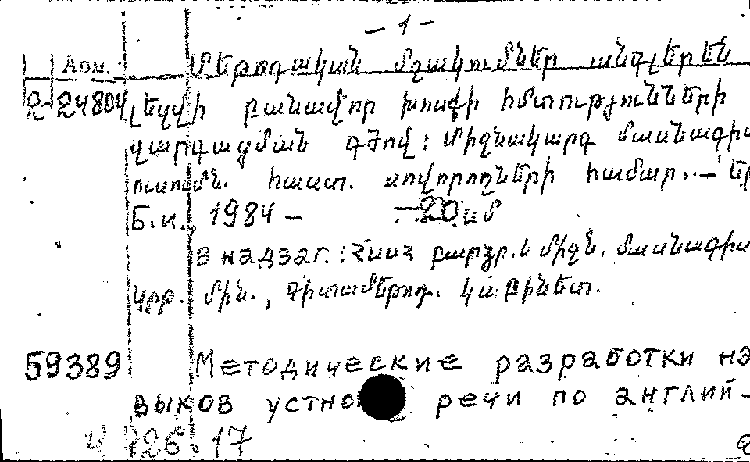 — 1 —
Арм. Մեթոդական մշակումներ անգլերեն
2-24804 լեզվի բանավոր խոսքի հմտությունների
զարգացման գծով: Միջնակարգ մասնագիտ
ուսումն. հաստ. սովորողների համար. — Եր
Б.и., 1984 — 20 սմ
В надзаг.: ՀՍՍՀ բարձր. և միջն. մասնագիտ
կրթ. մին., Գիտամեթոդ. կաբինետ.
59389 Методические разработки на
выков устной речи по англий-
4 726.17